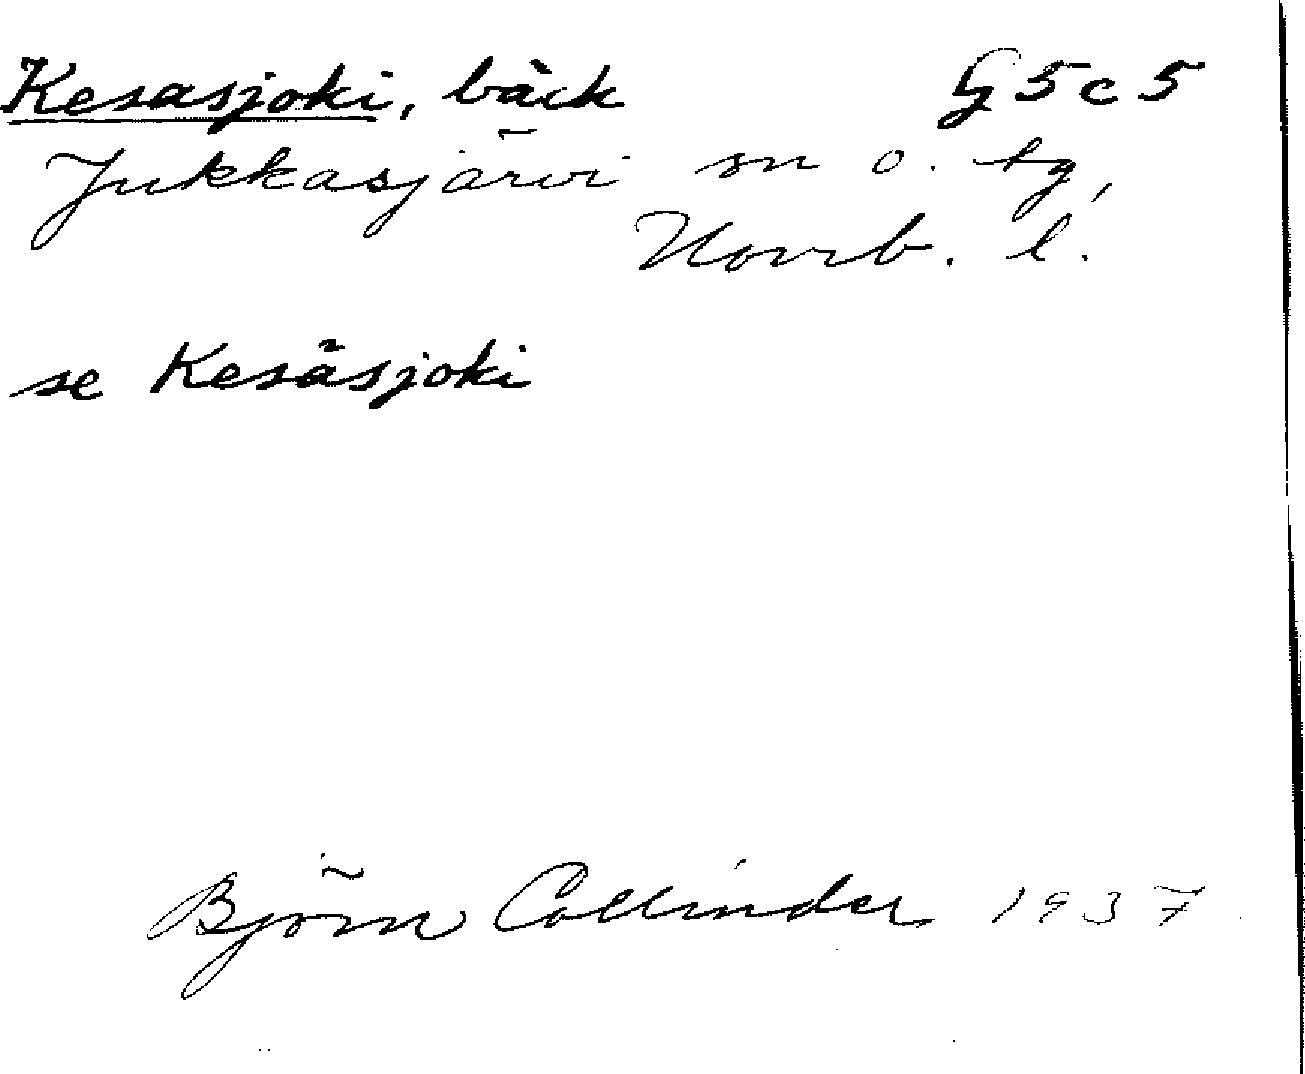 Kesasjoki, bäck G5c5
Jukkasjärvi sn o. tg,
Norrb. l.
se Kesäsjoki
Björn Collinder 1937